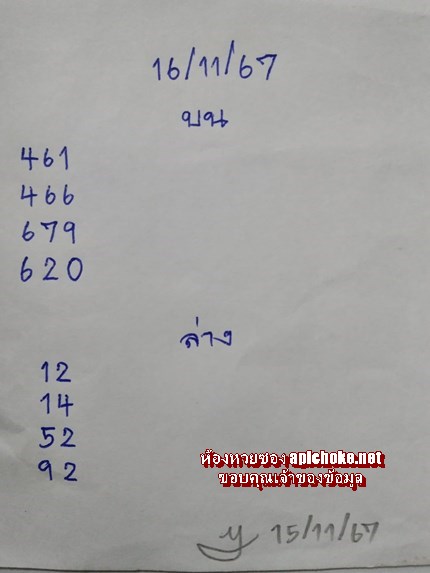 16/11/67
บน
461
466
679
620
ล่าง
12
14
52
92
ห้องหวยซอง apichoke.net
ขอบคุณเจ้าของข้อมูล
y 15/11/67